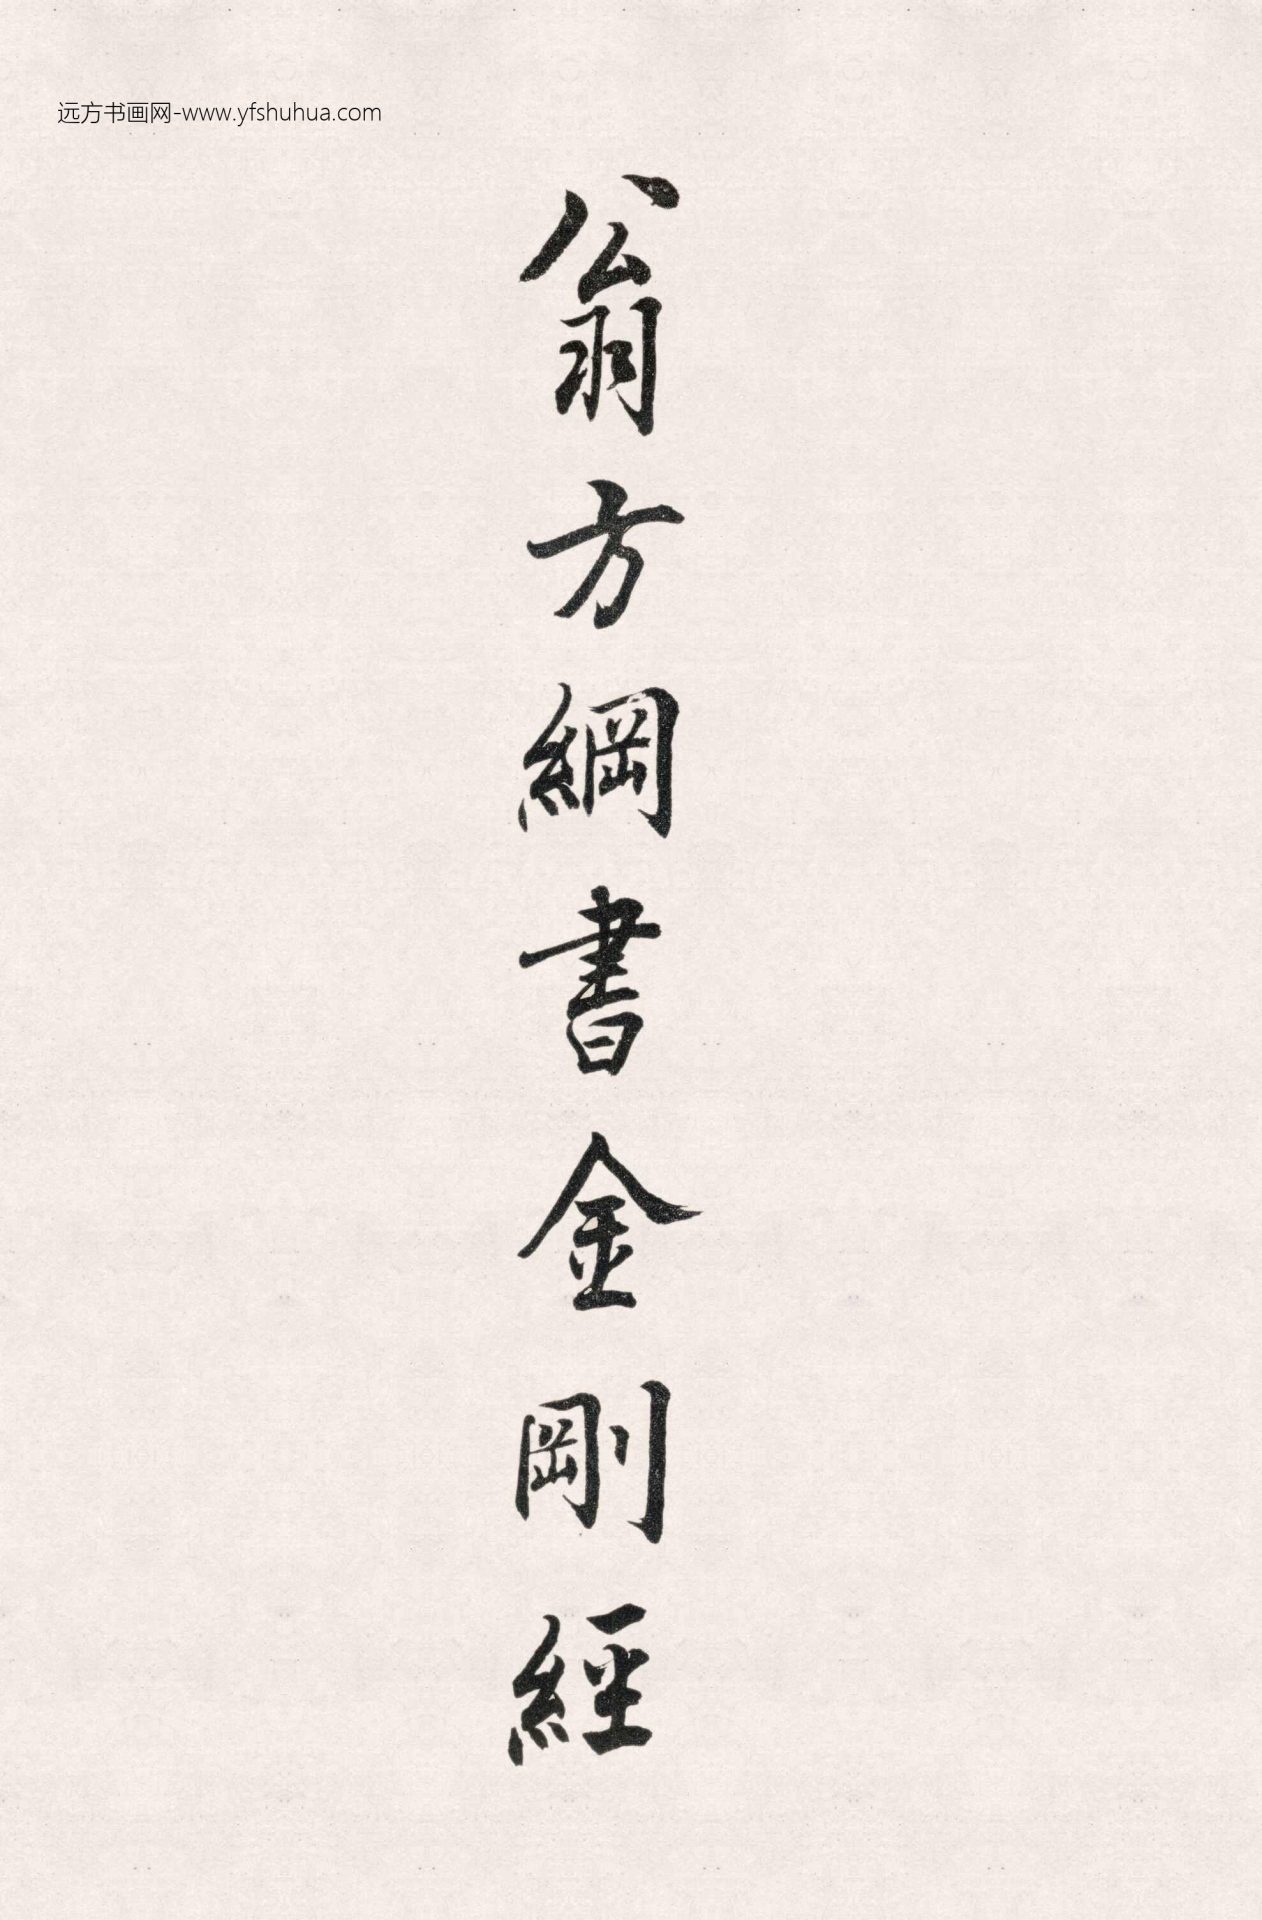 远方书画网-www.yfshuhua.com
翁方綱書金剛經